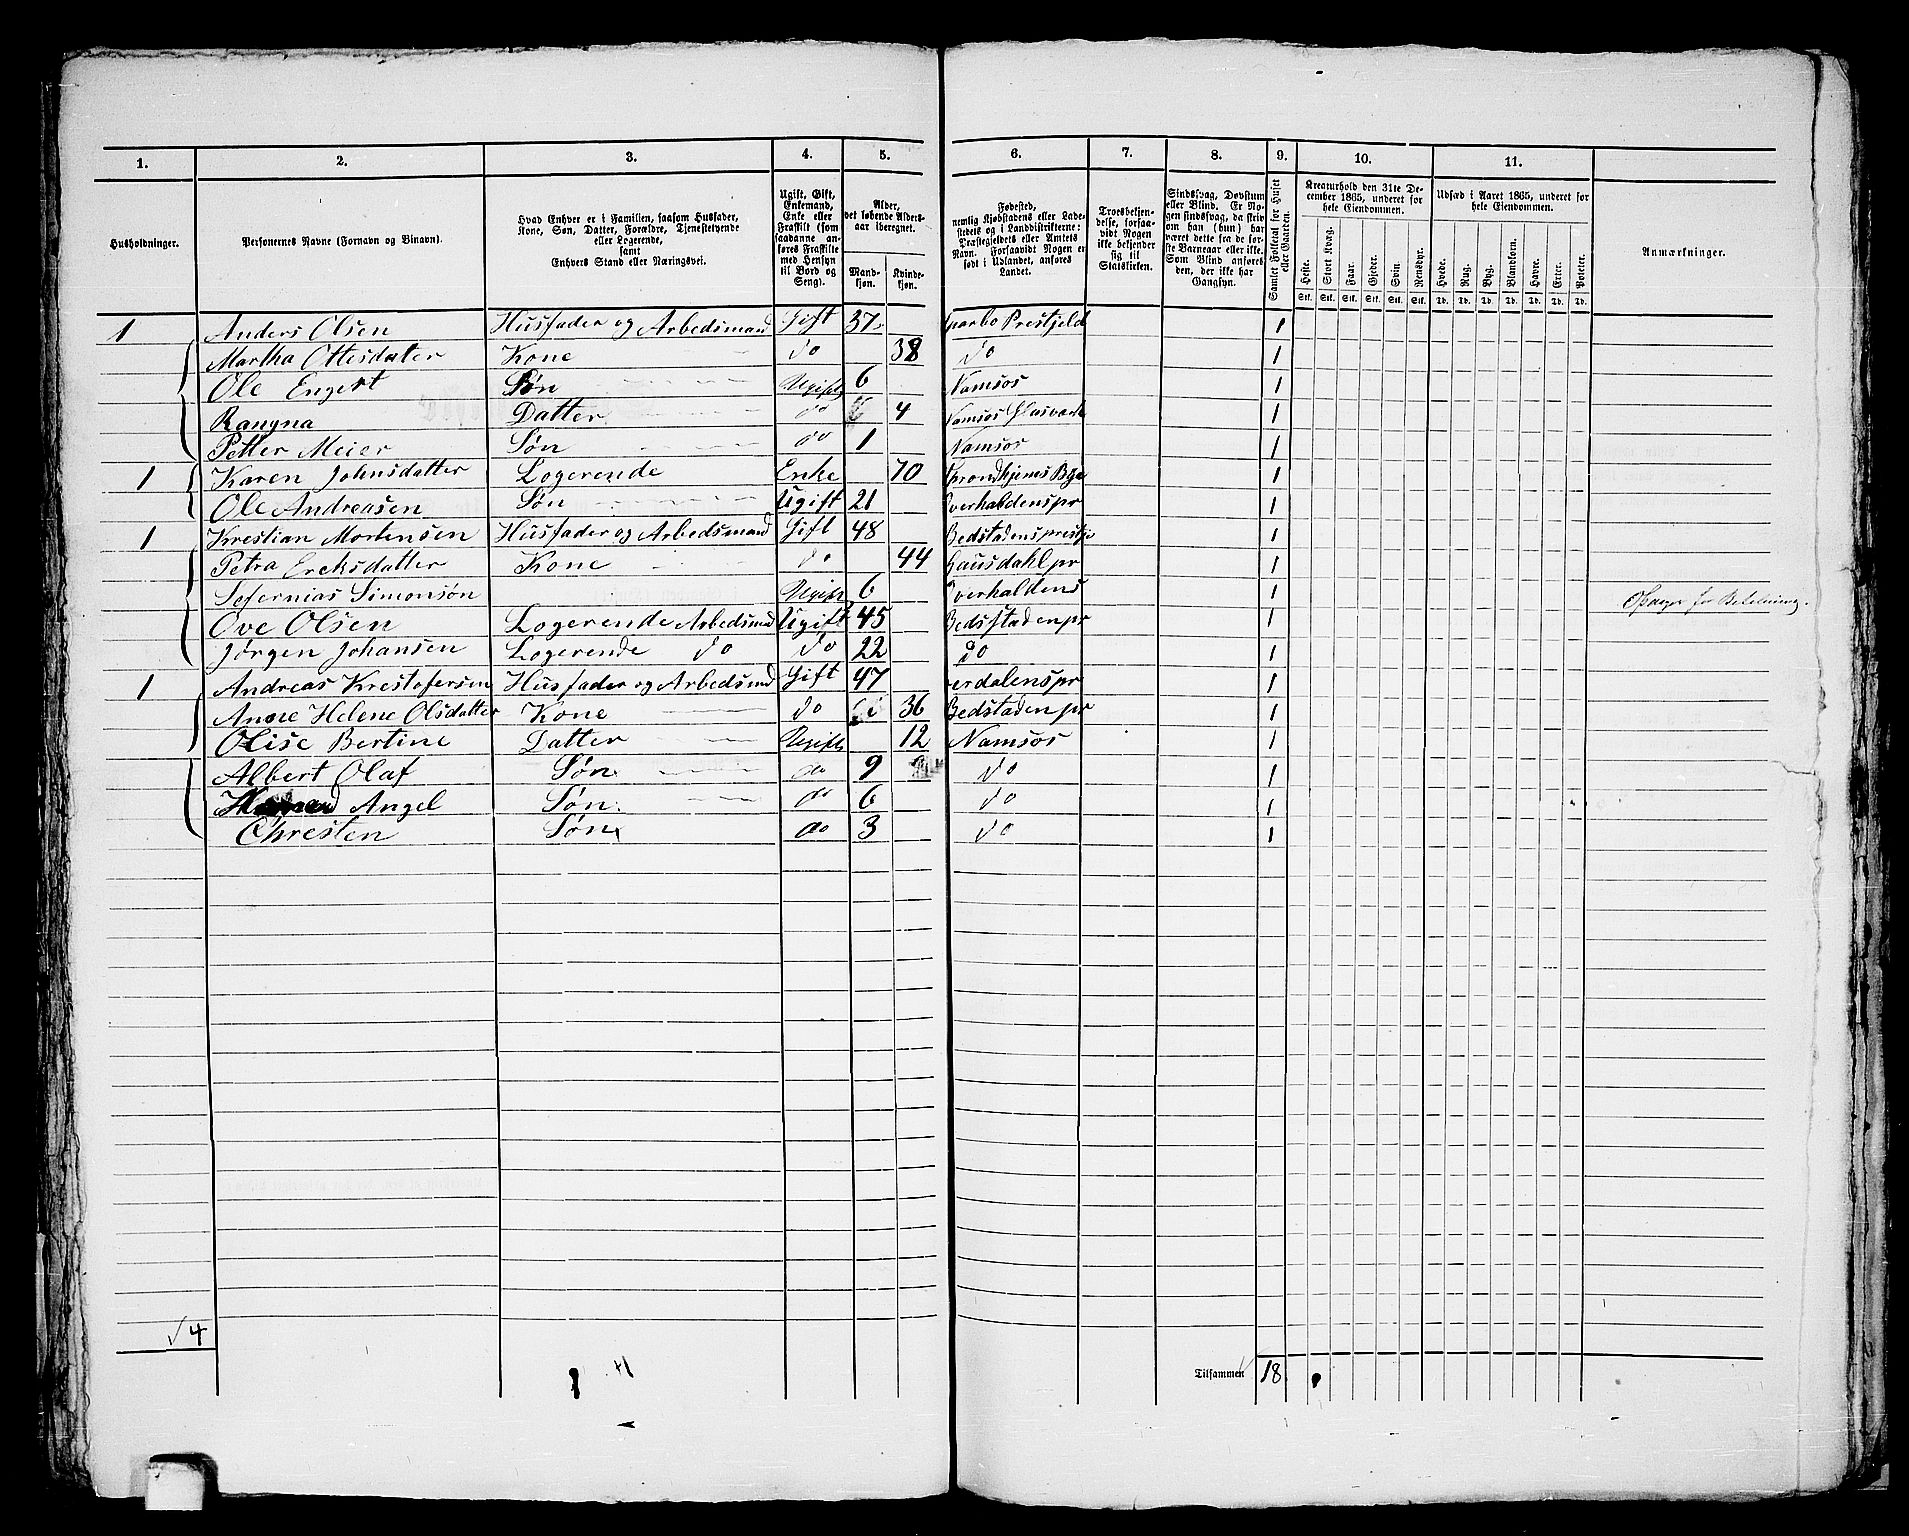 1. 2. 3. 4. 5. 6. 7. 8. 9. 10. 11.
Husholdninger.
Personernes Navne (Fornavn og Binavn).
Hvad Enhver er i Familien, saasom Husfader,
Kone, Søn, Datter, Forældre, Tjenestetyende
eller Logerende,
samt
Enhvers Stand eller Næringsvei.
Ugift, Gift,
Enkemand,
Enke eller
Fraskilt (som
saadanne an-
føres Fraskilte
med Hensyn
til Bord og
Seng).
Alder,
det løbende Alders-
aar iberegnet.
Mand-
kjøn.
Kvinde-
kjøn.
Fødested,
nemlig Kjøbstadens eller Lade-
stedets og i Landdistrikterne:
Præstegjeldets eller Amtets
Navn. Forsaavidt Nogen er
født i Udlandet, anføres
Landet.
Troesbekjen-
delse, forsaa-
vidt Nogen
ikke bekjender
sig til
Statskirken.
Sindssvag, Døvstum
eller Blind. Er No-
gen sindssvag, da skriv
om han (hun) har
været det fra de før-
ste Barneaar eller ikke.
Som Blind anføres
den, der ikke har
Gangsyn.
Samlet Folketal for Huset
eller Gaarden.
Kreaturhold den 31te De-
cember 1865, underet for
hele Eiendommen.
Heste. Stort Kvæg. Faar. Gjeder. Svin. Rensdyr.
Stk. Stk. Stk. Stk. Stk. Stk.
Udsæd i Aaret 1865, underet for
hele Eiendommen.
Hvede. Rug. Byg. Blandkorn. Havre. Erter. Poteter.
Td. Td. Td. Td. Td. Td. Td.
Anmærkninger.
1 Anders Olsen Husfader og Arbedsmand Gift 37 Sparbo Prestjeld 1
Martha Ottesdatter Kone do 38 do 1
Ole Engert Søn Ugift 6 Namsos 1
Rangna Datter do 4 Namsos 1
Petter Meier Søn do 1 Namsos 1
1 Karen Johnsdatter Logerende Enke 70 Trondhjems Bye 1
Ole Andreasen Søn Ugift 21 Overhaldens pr 1
1 Krestian Mortensen Husfader og Arbedsmand Gift 48 Bedstadens prestje 1
Petra Ereksdatter Kone do 44 Gausdahl pr 1
Sefernias Simonsøn Ugift 6 Overhaldens 1
Ove Olsen Logerende Arbedsmd Ugift 45 Bedsstaden pr 1
Jørgen Johansen Logerende do do 22 do 1
1 Andreas Krestofersen Husfader og Arbedsmd Gift 47 Verdalens pr 1
Anne Helene Olsdatter Kone do 36 Bedstaden pr 1
Olise Bertine Datter Ugift 12 Namsos 1
Albert Olaf Søn do 9 do 1
Angel Søn do 6 do 1
Chresten Søn do 3 do 1
4
Tilsammen 18